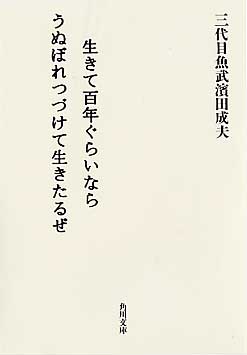 三代目魚武濱田成夫
生きて百年ぐらいなら
うぬぼれつづけて生きたるぜ
角川文庫